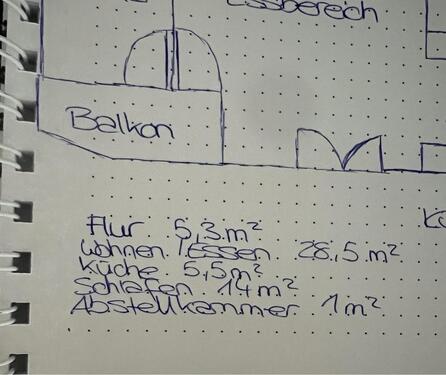 Essbereich
Balkon
Flur 5,3 m²
Wohnen / Essen 28,5 m²
Küche 5,5 m²
Schlafen 14 m²
Abstellkammer 1 m²